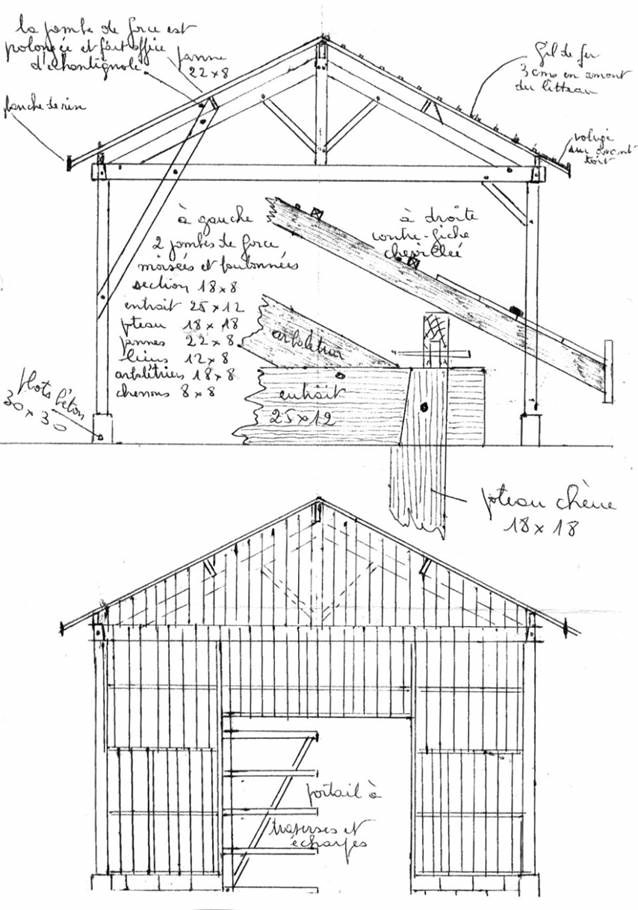 la jambe de force est
prolongée et fait office
d'échantignole
panne
22×8
planche de rive
fil de fer
3 cms en amont
du litteau
volige
sur avant
toit
à gauche
2 jambes de force
moisées et boulonnées
section 18×8
entrait 25×12
poteau 18×18
pannes 22×8
liens 12×8
arbalétriers 18×8
chevrons 8×8
à droite
contre-fiche
chevillée
arbalétrier
entrait
25×12
plots béton
30×30
poteau chêne
18×18
portail à
traverses et
écharpes